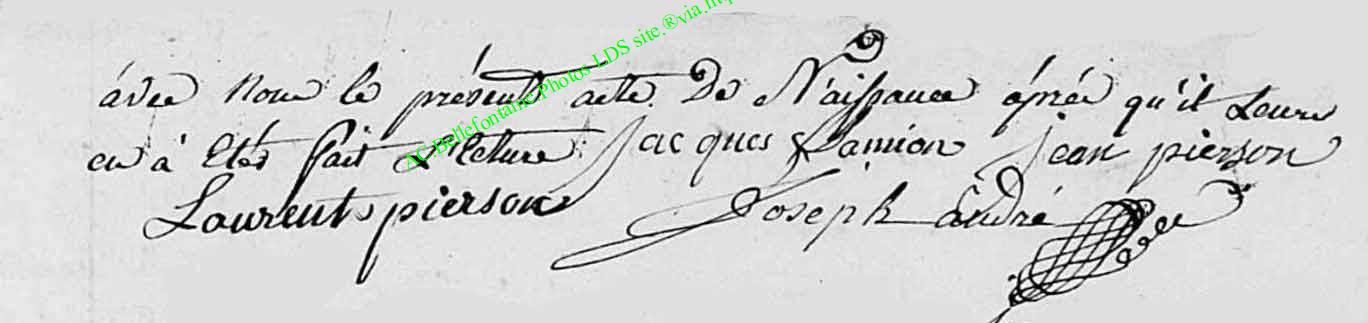 avec Nous le présent acte De Naissance aprés qu'il Leurs
en à Etés fait Lecture Jacques Lamion Jean pierson
Laurent pierson Joseph andré
AC.Bellefontaine.Photos LDS site.®via.http